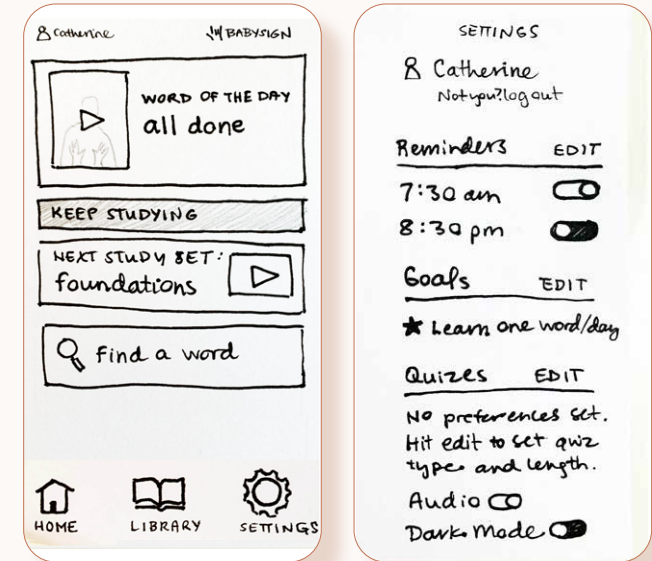 Catherine
BABYSIGN
WORD OF THE DAY
all done
KEEP STUDYING
NEXT STUDY SET:
foundations
find a word
HOME
LIBRARY
SETTINGS
SETTINGS
Catherine
Not you? log out
Reminders EDIT
7:30 am
8:30 pm
Goals EDIT
★ Learn one word/day
Quizes EDIT
No preferences set.
Hit edit to set quiz
type and length.
Audio
Dark Mode